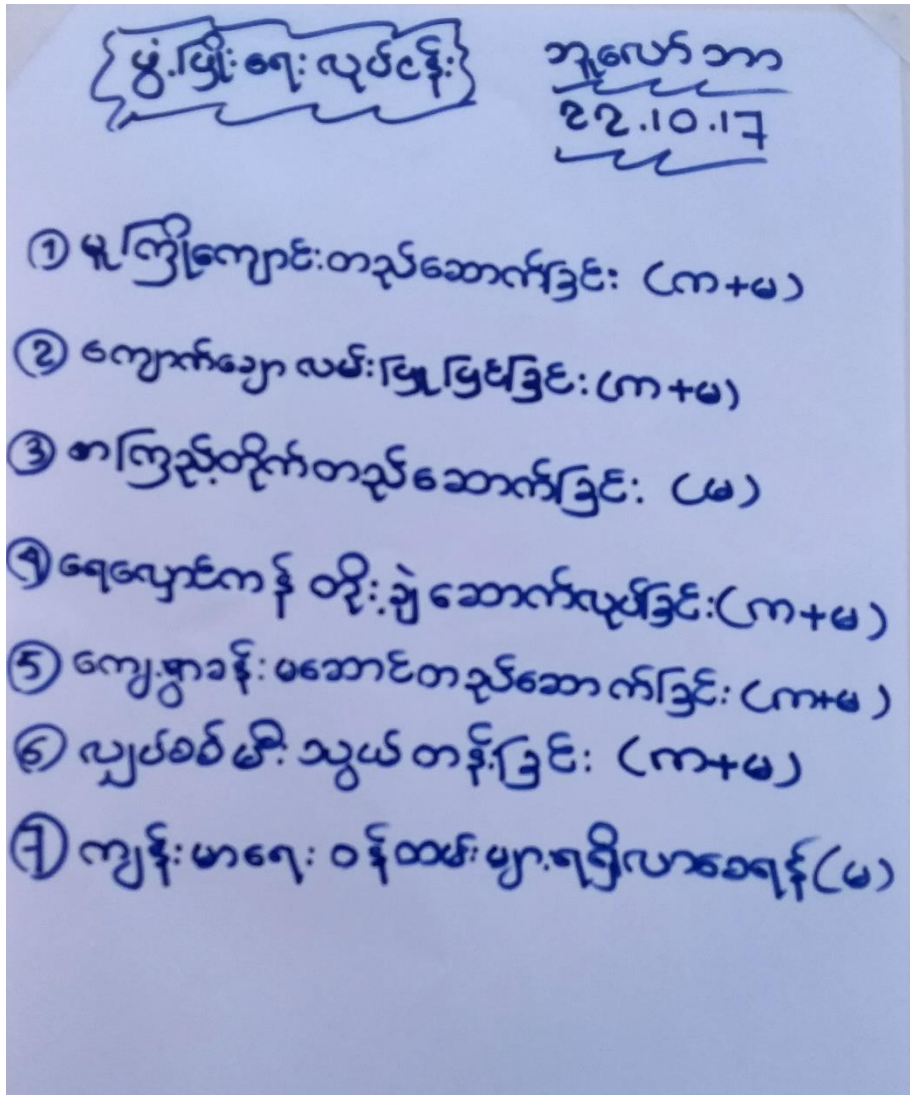 ဖွံ့ဖြိုးရေးလုပ်ငန်း
ဘူလော်ဘာ
22.10.17
① မူကြိုကျောင်းတည်ဆောက်ခြင်း (က+မ)
② ကျောက်ချောလမ်းပြုပြင်ခြင်း (က+မ)
③ စာကြည့်တိုက်တည်ဆောက်ခြင်း (မ)
④ ရေလှောင်ကန် တိုးချဲ့ဆောက်လုပ်ခြင်း (က+မ)
⑤ ကျေးရွာခန်းမဆောင်တည်ဆောက်ခြင်း (က+မ)
⑥ လျှပ်စစ်မီးသွယ်တန်းခြင်း (က+မ)
⑦ ကျန်းမာရေးဝန်ထမ်းများရရှိလာစေရန် (မ)